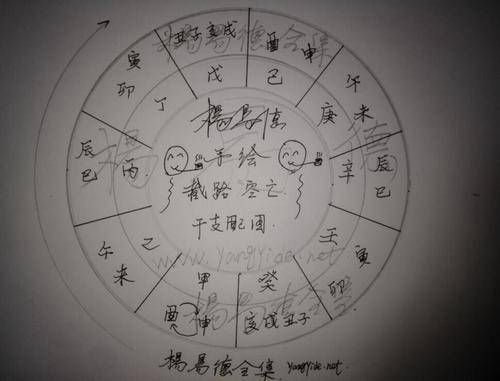 丑子亥戌
戊
酉申
己
午未
庚
辰巳
辛
寅卯
壬
癸
亥戌丑子
甲
酉申
乙
午未
丙
辰巳
丁
寅卯
楊易德
手绘
截路空亡
干支配图
www.YangYide.net
楊易德全集
楊易德全集 YangYide.net